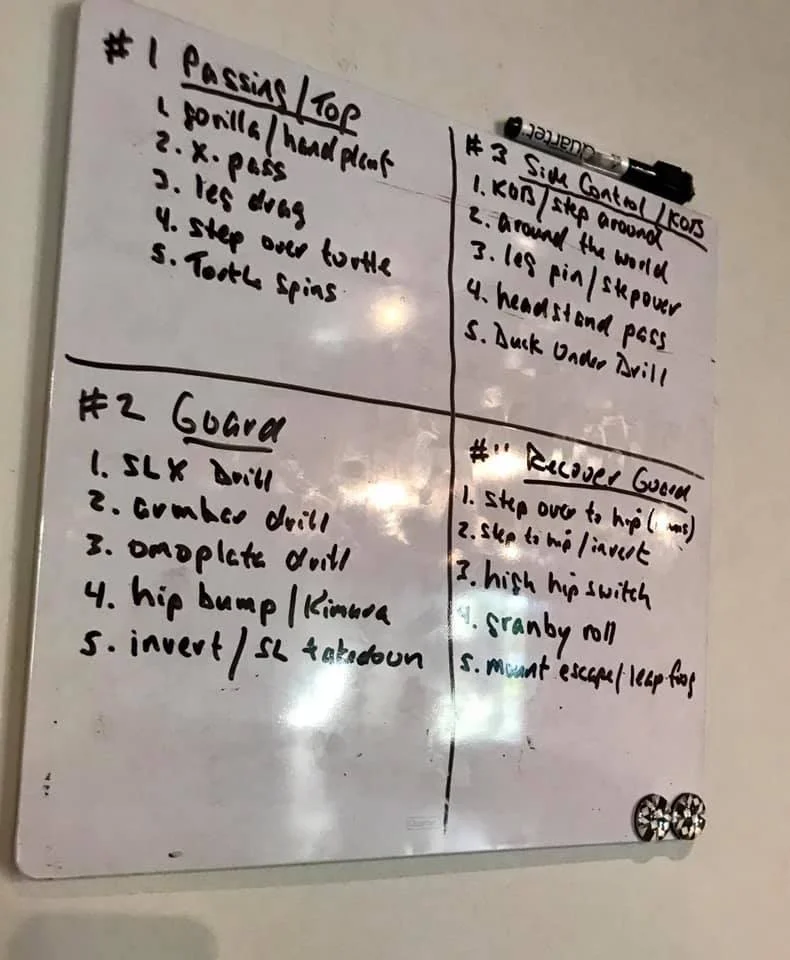 #1 Passing/Top
1. gorilla/hand plant
2. X. pass
3. leg drag
4. step over turtle
5. Turtle Spins
#2 Guard
1. SLX Drill
2. armbar drill
3. omoplata drill
4. hip bump/Kimura
5. invert/SL takedown
Quartet
#3 Side Control/KOB
1. KOB/step around
2. around the world
3. leg pin/stepover
4. headstand pass
5. Duck Under Drill
#4 Recover Guard
1. step over to hip
2. step to hip/invert
3. high hip switch
4. granby roll
5. mount escape/leap frog